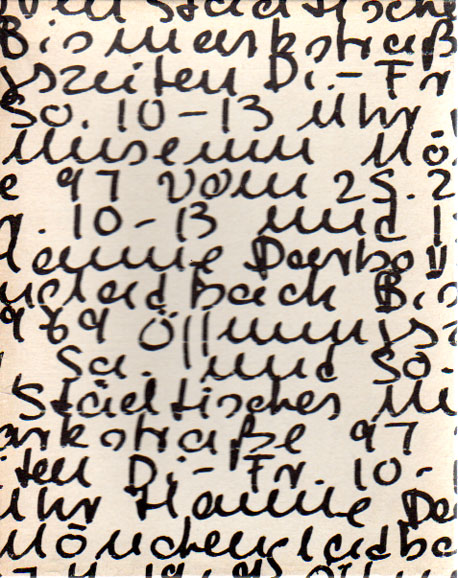 den Städtische
Bismarkstraß
gszeiten Di.- Fr
So. 10-13 Uhr
Museum Mö
e 97 vom 25. 2
r. 10-13 und 1
Hanne Darbov
nchengladbach Bis
969 Öffnungsz
Sa. und So.
Städtisches Mu
arkstraße 97
iten Di.- Fr. 10-
Uhr Hanne Da
Mönchengladba